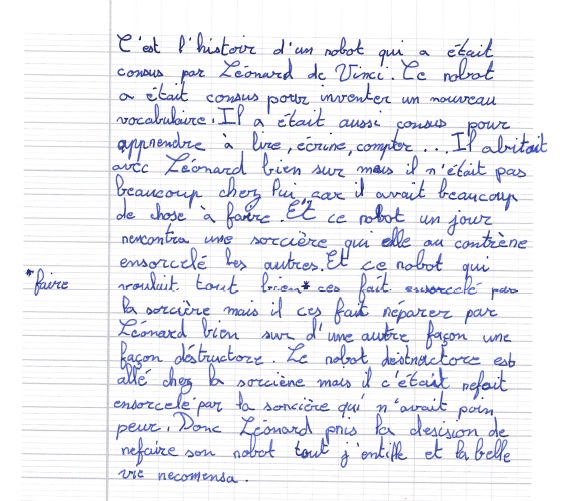 C'est l'histoir d'un robot qui a était
consus par Léonard de Vinci. Ce robot
a était consus pour inventer un nouveau
vocabulaire. Il a était aussi consus pour
apprendre à lire, écrire, compter... Il abitait
avec Léonard bien sur mais il n'était pas
beaucoup chez lui car il avait beaucoup
de chose à faire. Et ce robot un jour
rencontra une sorcière qui elle au contrère
ensorcelé les autres. Et ce robot qui
*faire voulait tout bien* ces fait ensorcelé par
la sorcière mais il ces fait réparer par
Léonard bien sur d'une autre façon une
façon déstructore. Le robot déstructore est
allé chez la sorcière mais il c'était refait
ensorcelé par la sorcière qui n'avait poin
peur. Donc Léonard pris la desision de
refaire son robot tout j'entille et la belle
vie recomensa.